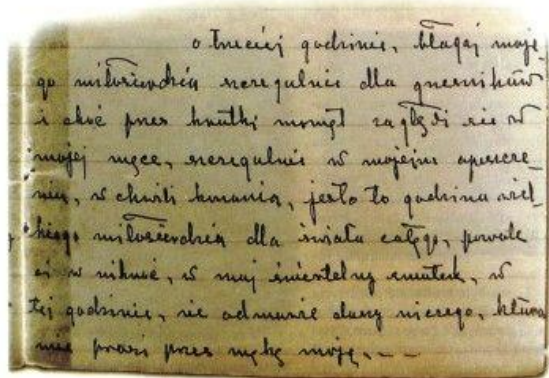 o trzeciej godzinie, błagaj moje-
go miłosierdzia szczegulnie dla grzeszników
i choć przez krutki moment zagłębi się w
mojej męce, szczegulnie w mojém opuszcze-
niu, w chwili konania, jesto to godzina wiel-
kiego miłosierdzia dla świata całego, pozwole
ci w niknąć, w muj śmiertelny smutek, w
tej godzinie, nie odmuwie duszy niczego, która
mnie prosi przez mękę moję, – –